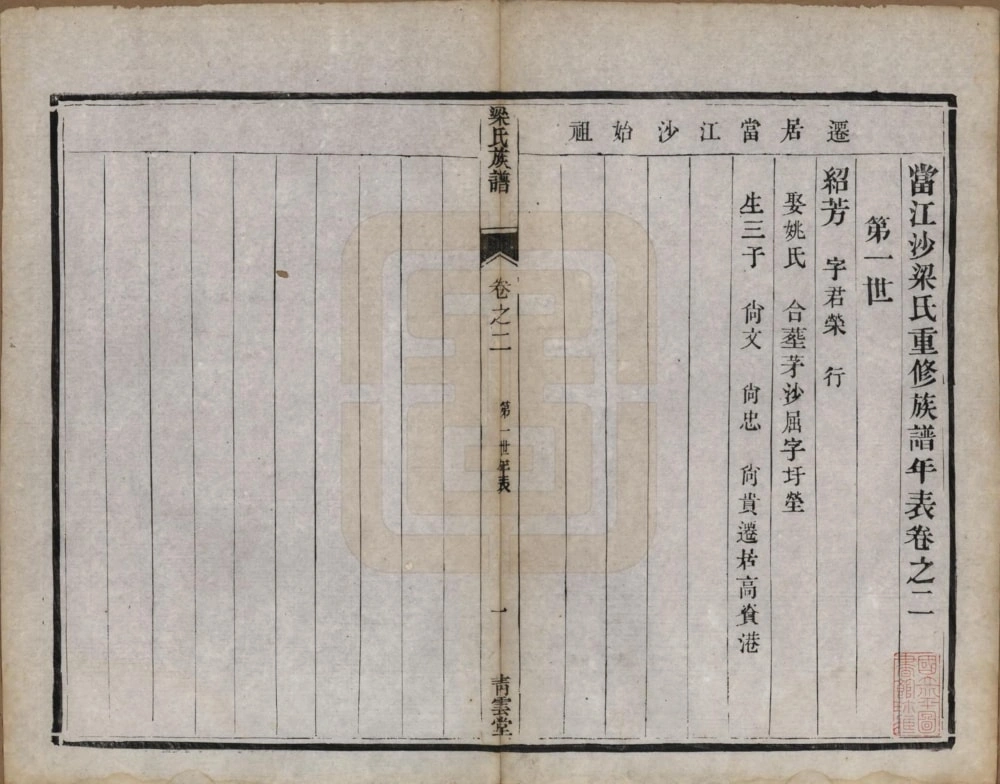 當江沙梁氏重修族譜年表卷之二
遷居當江沙始祖
第一世
紹芳 字君榮 行
娶姚氏 合塟茅沙屈字圩塋
生三子 尙文 尙忠 尙貴遷居高資港
梁氏族譜 卷之二 第一世年表 一 青雲堂